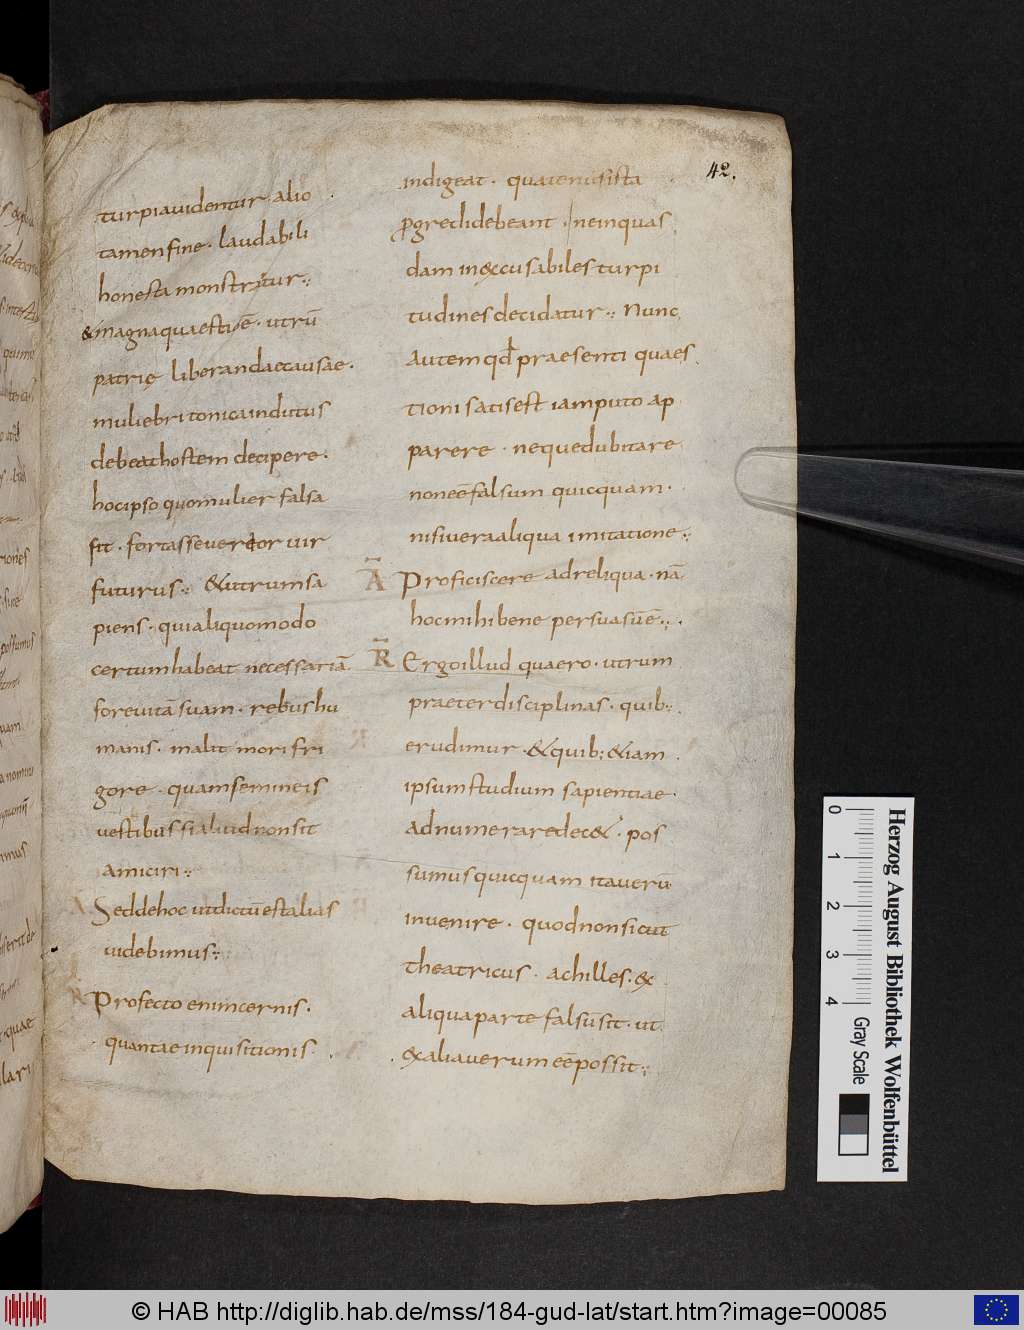 42.
turpiauidentur. alio
tamenfine. laudabili
honesta monstratur:
&magnaquaestioē. utrū
patrię liberandaecausae.
muliebri tonicaindutus
debeathostem decipere.
hocipso quomulier falsa
sit. fortasseuerior uir
futurus: &utrumsa
piens. quialiquomodo
certumhabeat necessariā
foreuitā suam. rebushu
manis. malit mori fri
gore. quamfemineis
uestibus sialiudnonsit
amiciri:
A Seddehoc utdictūestalias
uidebimus:
R Profecto enimcernis.
quantaeinquisitionis.
indigeat. quatenusista
progredidebeant. neinquas
dam inexcusabiles turpi
tudinesdecidatur: Nunc
Autem qđ praesenti quaes
tioni satisest iamputo ap
parere. nequedubitare
noneēfalsum quicquam.
nisiueraaliqua imitatione:
Ā Proficiscere adreliqua. nā
hocmihibene persuasūē:
R̄ Ergoillud quaero. utrum
praeterdisciplinas. quib:
erudimur. &quib: &iam
ipsumstudium sapientiae.
adnumeraredec&. pos
sumusquicquam itauerū
inuenire. quodnonsicut
theatricus. achilles. ex
aliquaparte falsūsit. ut
exaliauerum eēpossit:
Herzog August Bibliothek Wolfenbüttel
0 1 2 3 4 Gray Scale
© HAB http://diglib.hab.de/mss/184-gud-lat/start.htm?image=00085